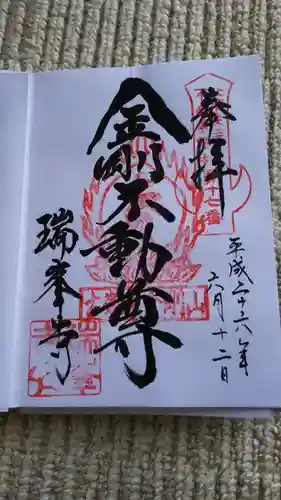 奉拝
平成二十六年
六月十二日
金剛不動尊
瑞峯寺